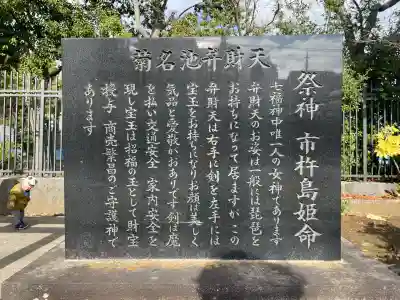 菊名池弁財天
祭神 市杵島姫命
七福神中唯一人の女神であります
弁財天のお姿は一般には琵琶を
お持ちになって居ますがこの
弁財天は右手には剣を左手には
宝玉をお持ちになりお顔は美しく
気品と愛敬がおありです剣は魔
を払い交通安全家内安全を
現し宝玉は招福の玉として財宝
授与 商売繁昌のご守護神で
あります